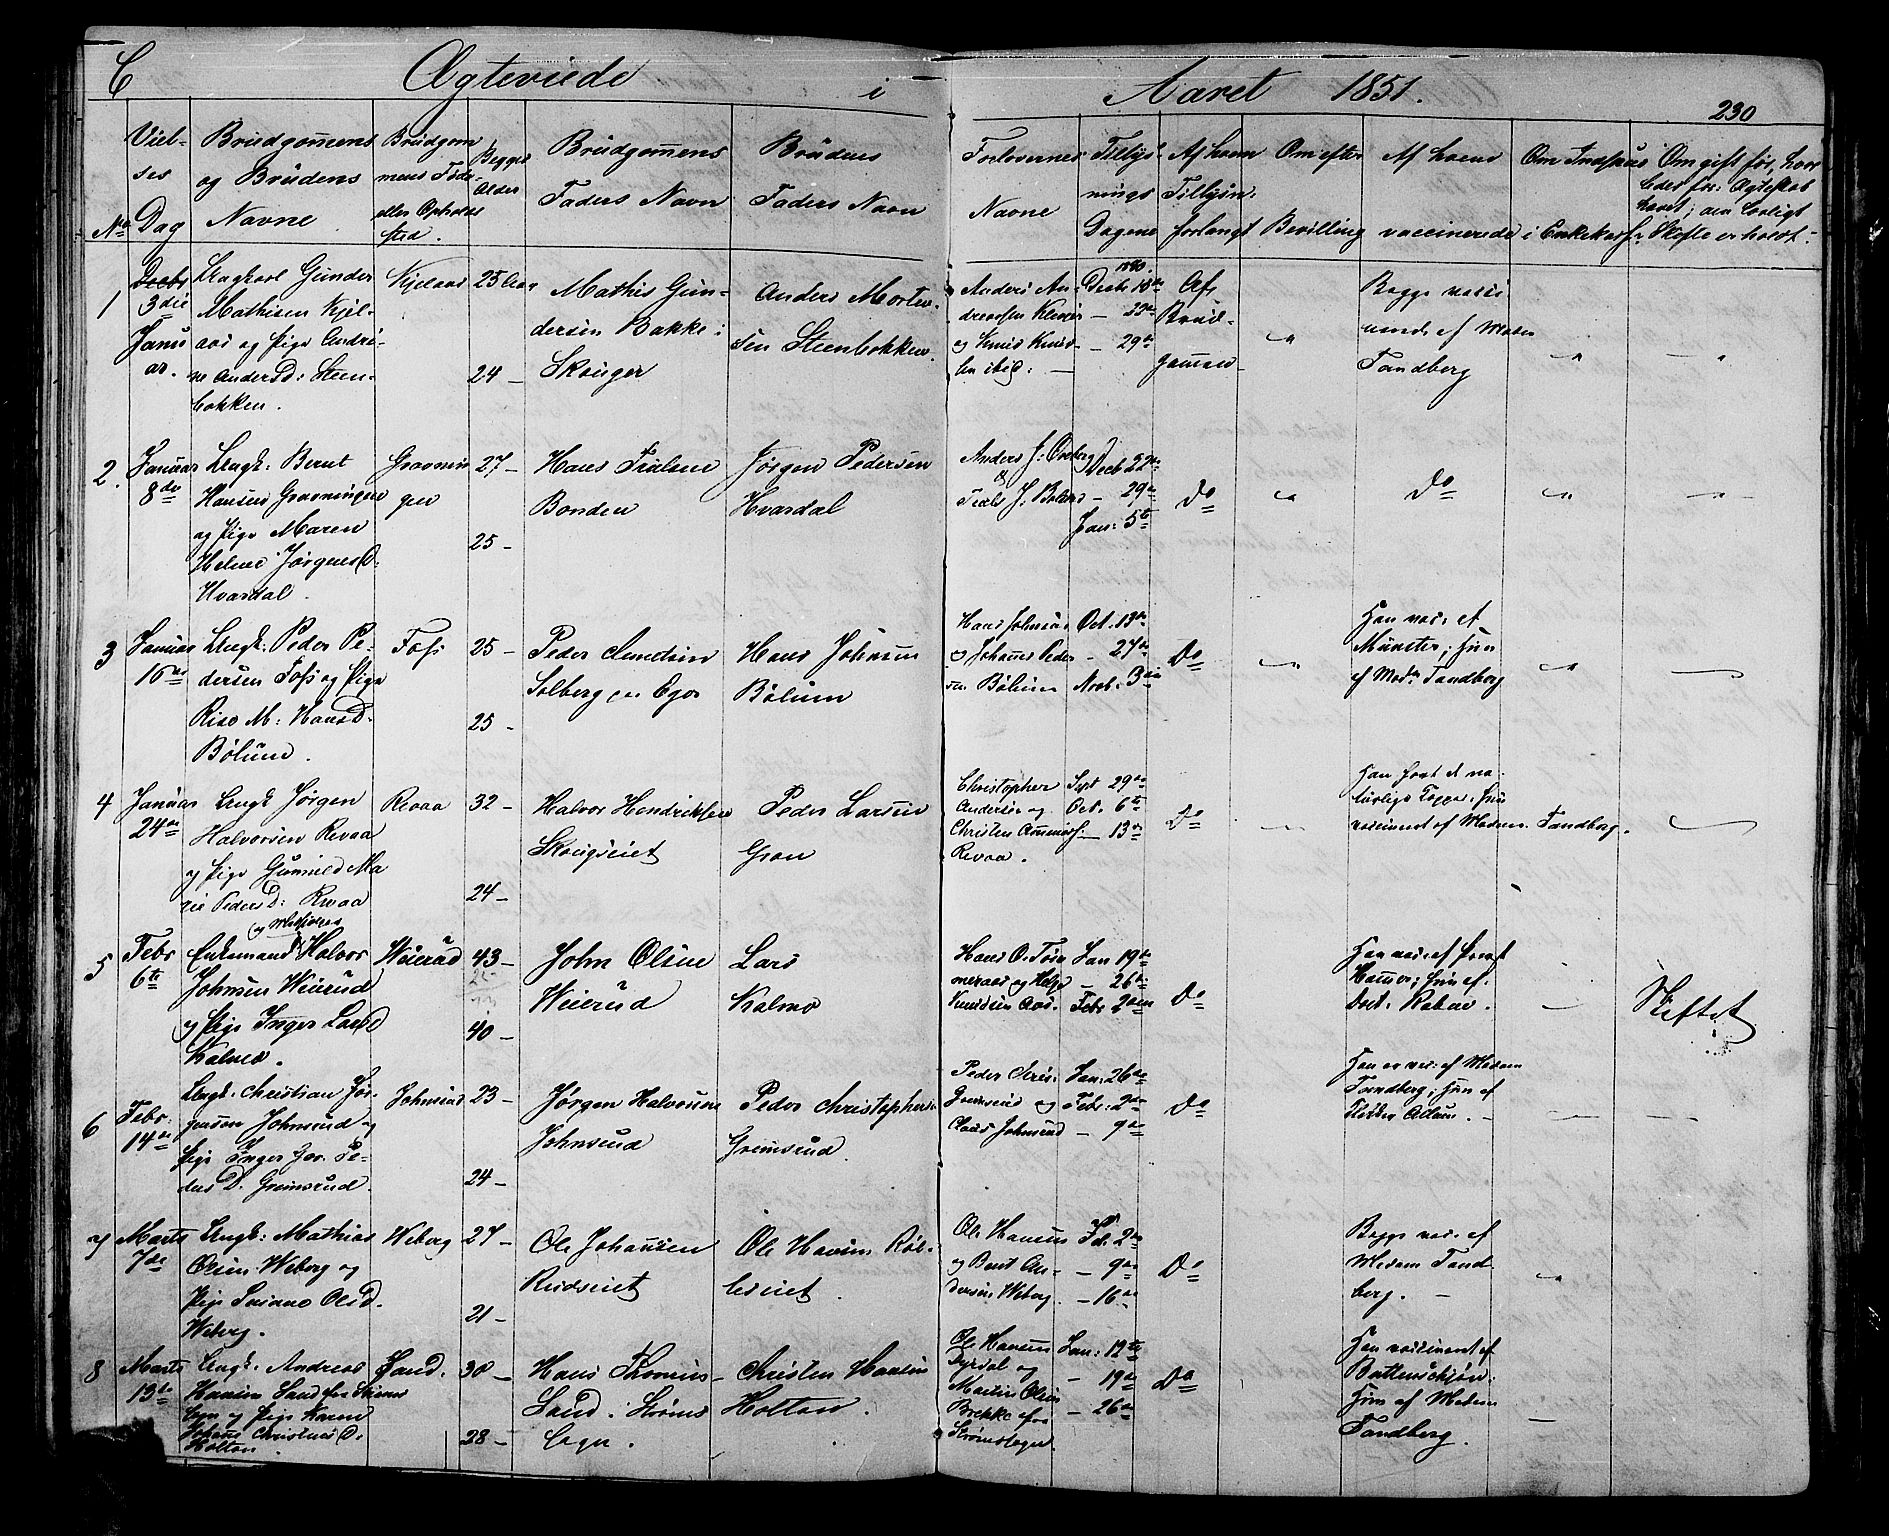 C Ægteviede i Aaret 1851.
230
No
Viel-
ses
Dag
Brudgomens
og Brudens
Navne
Brudgom
mens Føde-
eller Opholds
sted.
Begges
Alder
Brudgomens
Faders Navn
Brudens
Faders Navn
Forlovernes
Navne
Tillys-
nings
Dagene
Af hvem
Tillysn:
forlangt
Om efter
Bevilling
Af hvem
vaccinerede
Om Indskud
i Enkekasse
Om gift før, hvor
ledes for: Ægteskab
hævet; om lovligt
Skifte er holdt.
1
3die
Janu
ar.
Ungkarl Gunder
Mathisen Kjøl-
aas og Pige Andri-
ne AndersD: Steen-
bokken.
Kjølaas
25 Aar
24 -
Mathis Gun-
dersen Bakke i
Skouger
Anders Morten-
sen Steenbokken.
Anders An-
dreassen
og Knud Knud-
sen ibid: -
1850.
Decbr 15de
- 22de
- 29de
Af
Brud-
gommen
"
Begge vacci
nerede af Madam
Tandberg
"
"
2.
Januar
8de
Ungk: Bernt
Hansen Gravningen
og Pige Maren
Helene JørgensD.
Hvardal.
Gravnin
gen
27 -
25 -
Hans
Bonden
Jørgen Pedersen
Hvardal
Anders J:
&
Decb 22de
- 29de
Jan: 5te
Do
"
Do
"
"
3
Januar
16de
Ungk: Peder Pe-
dersen Foss og Pige
M: HansD.
Bølum.
Foss
25 -
25 -
Peder Amundsen
Solberg
Hans Johnsen
Bølum
Hans Johnsen
og Johannes Peder
sen Bølum
Oct. 13de
- 27de
Novb: 3die
Do
"
Han vac: af
Münster; hun
af Mad: Tandberg
"
4
Januar
24de
Ungk Jørgen
Halvorsen Revaa
og Pige Gunnild Ma
rie PedersD: Revaa
Revaa
32 -
24 -
Halvor Hendriksen
Skougseiet
Peder Larsen
Gran
Christopher
Andersen og
Christen
Revaa.
Sept 29de
Oct. 6te
- 13de
Do
Han havt de na-
turlige Kopper; hun
vaccineret af Madam Tandberg.
5
Febr
6te
Enkemand Halvor
Johnsen Weierud
og Pige Inger LarsD
Weierud
43 -
40 -
John Olsen
Weierud
Lars
Kalmo
Hans O.
og Helge
Knudsen Aas.
Jan 19de
- 26de
Febr 2den
Do
Han vac: af Provst
hun af
Doct: Rabae.
-
Skiftet
6
Febr.
14de
Ungk. Christian Jør-
gensen Johnsrud og
Pige Inger Jor. Pe-
dersD. Grimsrud.
Johnsrud
23 -
24 -
Jørgen Halvorsen
Johnsrud
Peder Christophers
Grimsrud.
Peder
Grimsrud og
Claus Johnsrud
Jan: 26de
Febr: 2den
- 9de
Do
Han er vac: af Madam
Tandberg; Hun af
-
7
Marts
7de
Ungk: Mathias
Olsen Weberg og
Pige OlsD.
Weberg.
Weberg
27 -
21 -
Ole Johansen
Rudseiet
Ole Hansen Røl-
leseiet.
Ole Hansen
og Bent An-
dersen Weberg.
Feb. 2den
- 9de
- 16de
Do
Begge vac: af
Madam Tand-
berg. -
"
8
Marts
13de
Ungk: Andreas
Hansen Sand fra Strøms
og Pige Karen
Johanne ChristensD.
Holtan.
Sand.
30 -
28 -
Hans Thomes-
Sand i Strøms
Christen Hansen
Holtan.
Ole Hansen
Dyrdal og
Martin Olsen
Brekke fra
Strømslagen
Jan: 12te
- 19de
- 26de
Do
Han vaccineret af
Hun af Madam
Tandberg.
-